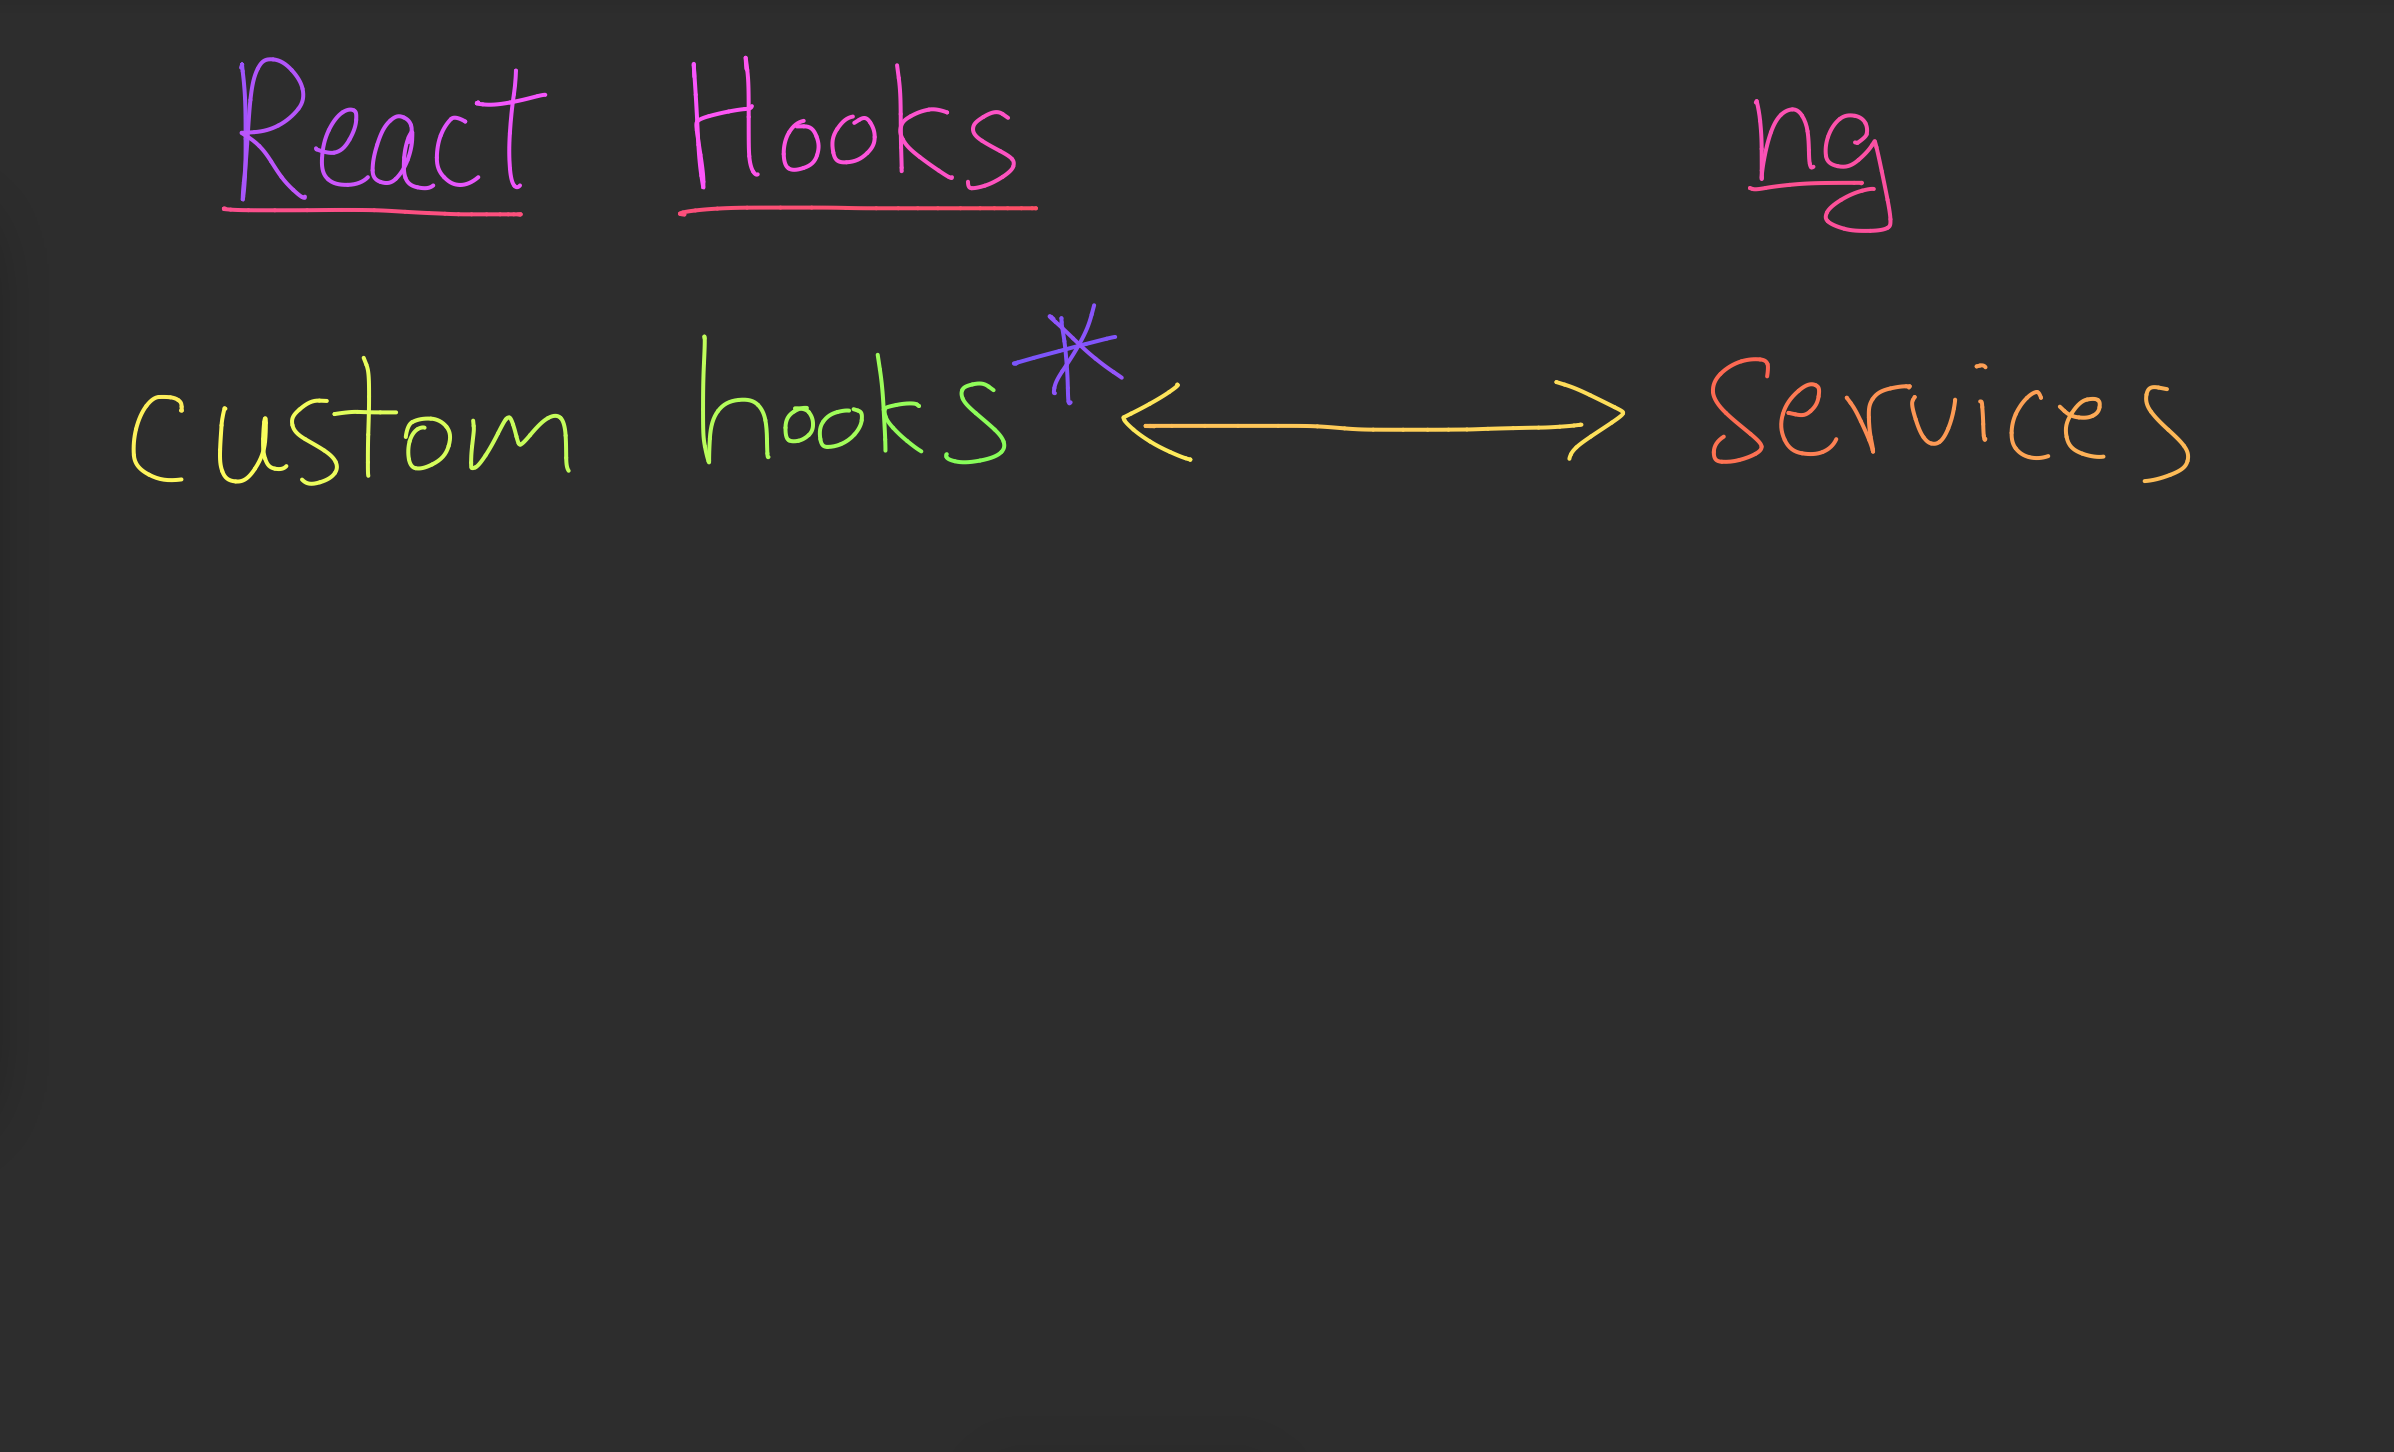 React Hooks ng
custom hooks* <-> Services